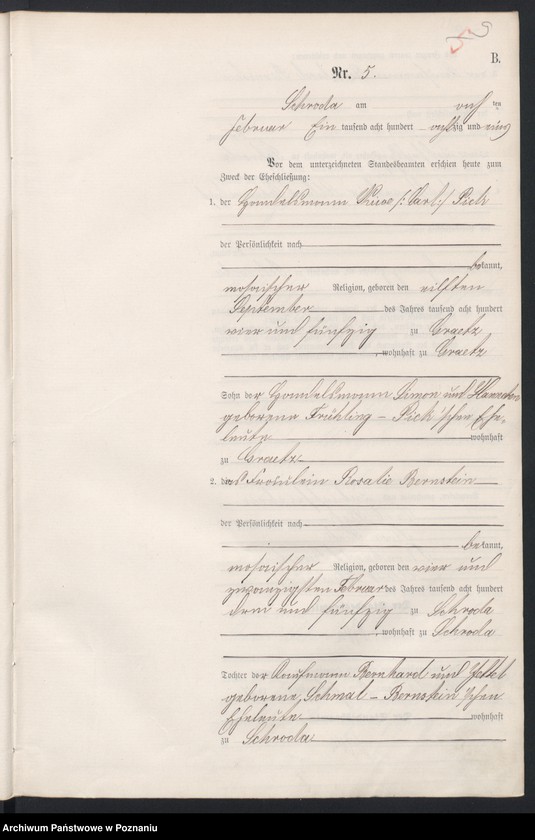 5
B.
Nr. 5.
Schroda am acht ten
Februar Ein tausend acht hundert achtzig und eins
Vor dem unterzeichneten Standesbeamten erschien heute zum
Zweck der Eheschließung:
1. der Handelsmann /:Carl:/ Pick
der Persönlichkeit nach
bekannt,
mosaischer Religion, geboren den elften
September des Jahres tausend acht hundert
vier und fünfzig zu Graetz
, wohnhaft zu Graetz
Sohn der Handelsmann Simon und Hannchen
geborene Frühling - Pick'schen Ehe-
leute wohnhaft
zu Graetz
2. das Fräulein Rosalie Bernstein
der Persönlichkeit nach
bekannt,
mosaischer Religion, geboren den vier und
zwanzigsten Februar des Jahres tausend acht hundert
und fünfzig zu Schroda
, wohnhaft zu Schroda
Tochter der Kaufmann Bernhard und
geborene Schmal - Bernstein'schen
Eheleute wohnhaft
zu Schroda
Archiwum Państwowe w Poznaniu